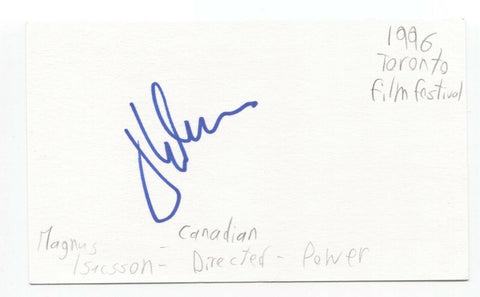 1996
Toronto
film festival
Canadian
Magnus
Isacsson - Directed - Power